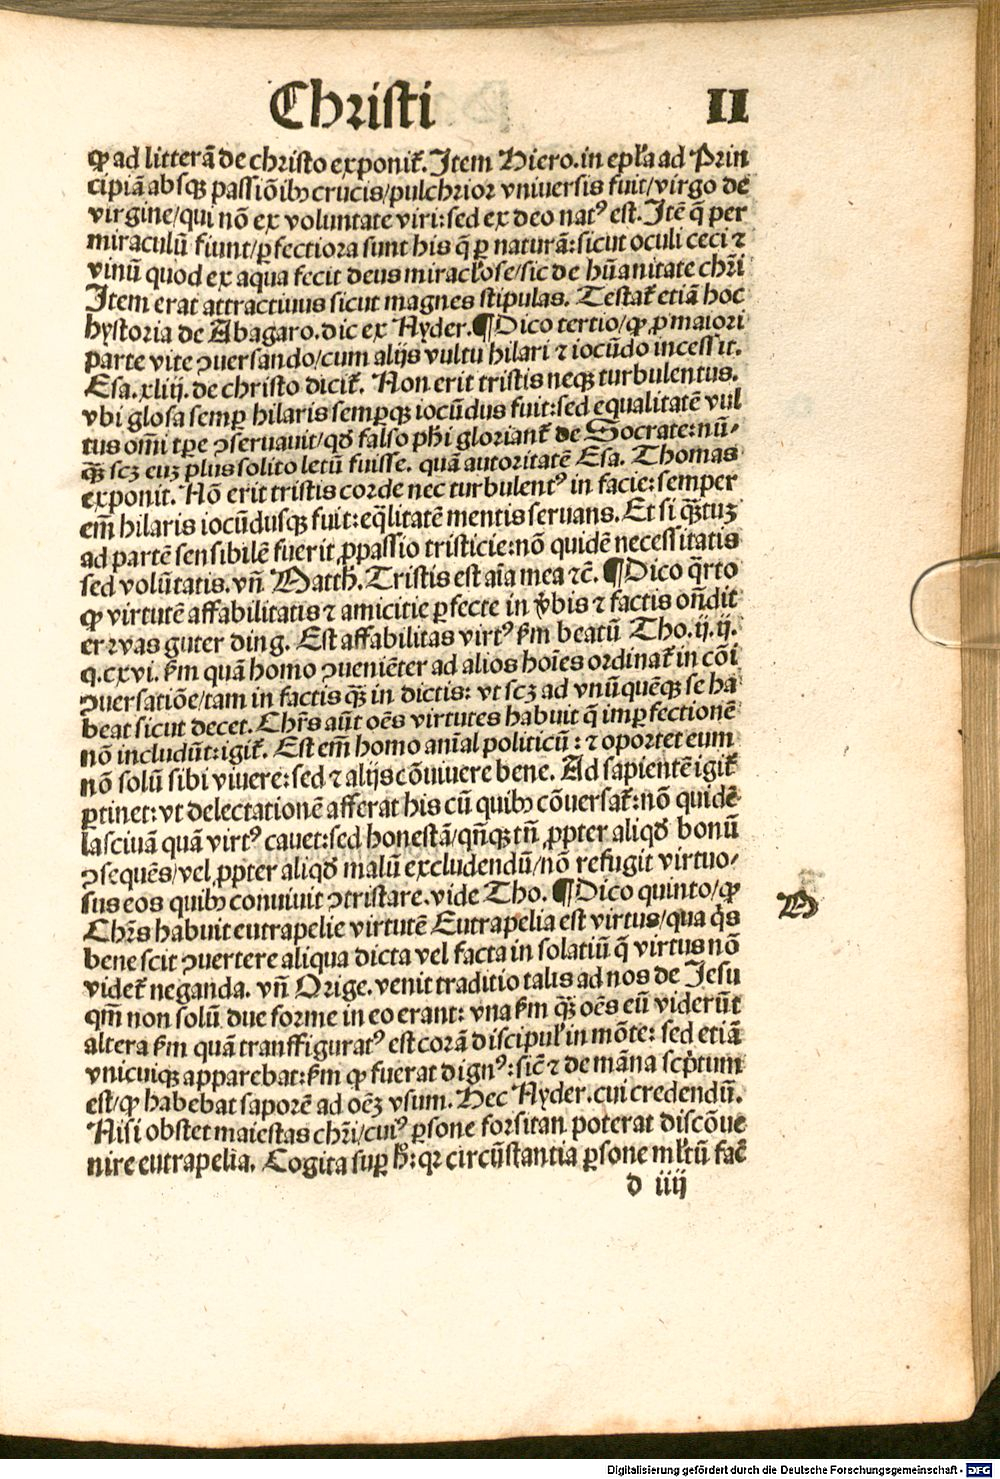 Christi II
ꝙ ad litterã de christo exponit̃. Item Hiero. in ep̃la ad Prin
cipiã absqꝫ passiõibꝰ crucis/pulchrior vniuersis fuit/virgo de
virgine/qui nõ ex voluntate viri: sed ex deo natꝰ est. Itẽ q̃ per
miraculũ fiunt/ꝑfectiora sunt his q̃ ꝑ naturã: sicut oculi ceci ⁊
vinũ quod ex aqua fecit deus miracl̃ose/sic de hũanitate chr̃i
Item erat attractiuus sicut magnes stipulas. Testat̃ etiã hoc
hystoria de Abagaro. dic ex Nyder. ¶Dico tertio/ꝙ ꝓ maiori
parte vite ꝯuersando/cum alijs vultu hilari ⁊ iocũdo incessit.
Esa. xliij. de christo dicit̃. Non erit tristis neqꝫ turbulentus.
vbi glosa semꝑ hilaris semꝑqꝫ iocũdus fuit: sed equalitatẽ vul
tus om̃i tꝑe ꝯseruauit/qđ falso ph̃i gloriant̃ de Socrate: nũ-
q̃ꝫ scꝫ euꝫ plus solito letũ fuisse. quã autoritatẽ Esa. Thomas
exponit. Nõ erit tristis corde nec turbulentꝰ in facie: semper
em̃ hilaris iocũdusqꝫ fuit: eq̃litatẽ mentis seruans. Et si q̃ꝫtuꝫ
ad partẽ sensibilẽ fuerit ꝓpassio tristicie: nõ quidẽ necessitatis
sed volũtatis. vñ Matth̃. Tristis est aĩa mea ⁊c̃. ¶Dico q̃rto
ꝙ virtutẽ affabilitatis ⁊ amicitie ꝑfecte in v̾bis ⁊ factis oñdit
er was guter ding. Est affabilitas virtꝰ fm̃ beatũ Tho. ij. ij.
q. cxvi. fm̃ quã homo ꝯueniẽter ad alios hoĩes ordinat̃ in cõi
ꝯuersatiõe/tam in factis q̃ꝫ in dictis: vt scꝫ ad vnũquẽqꝫ se ha
beat sicut decet. Chr̃s aũt oẽs virtutes habuit q̃ imꝑfectionẽ
nõ includũt: igit̃. Est em̃ homo anĩal politicũ: ⁊ oportet eum
nõ solũ sibi viuere: sed ⁊ alijs cõuiuere bene. Ad sapientẽ igit̃
ꝑtinet: vt delectationẽ afferat his cũ quibꝰ cõuersat̃: nõ quidẽ
lasciuã quã virtꝰ cauet: sed honestã/qñqꝫ tñ ꝓpter aliqđ bonũ
ꝯsequẽs/vel ꝓpter aliqđ malũ excludendũ/nõ refugit virtuo-
sus eos quibꝰ conuiuit ꝯtristare. vide Tho. ¶Dico quinto/ꝙ
Chr̃s habuit eutrapelie virtutẽ Eutrapelia est virtus/qua q̃s
bene scit ꝯuertere aliqua dicta vel facta in solatiũ q̃ virtus nõ
videt̃ neganda. vñ Orige. venit traditio talis ad nos de Jesu
qm̃ non solũ due forme in eo erant: vna fm̃ q̃ꝫ oẽs eũ viderũt
altera fm̃ quã tranffiguratꝰ est corã discipul̃ in mõte: sed etiã
vnicuiqꝫ apparebat: fm̃ ꝙ fuerat dignꝰ: sic̃ ⁊ de mãna sc̃ptum
est/ꝙ habebat saporẽ ad oẽꝫ vsum. Hec Nyder. cui credendũ.
Nisi obstet maiestas chr̃i/cuiꝰ ꝑsone forsitan poterat discõue
nire eutrapelia. Cogita suꝑ h̃: qꝛ circũstantia ꝑsone ml̃tũ fac̃
d iiij
B